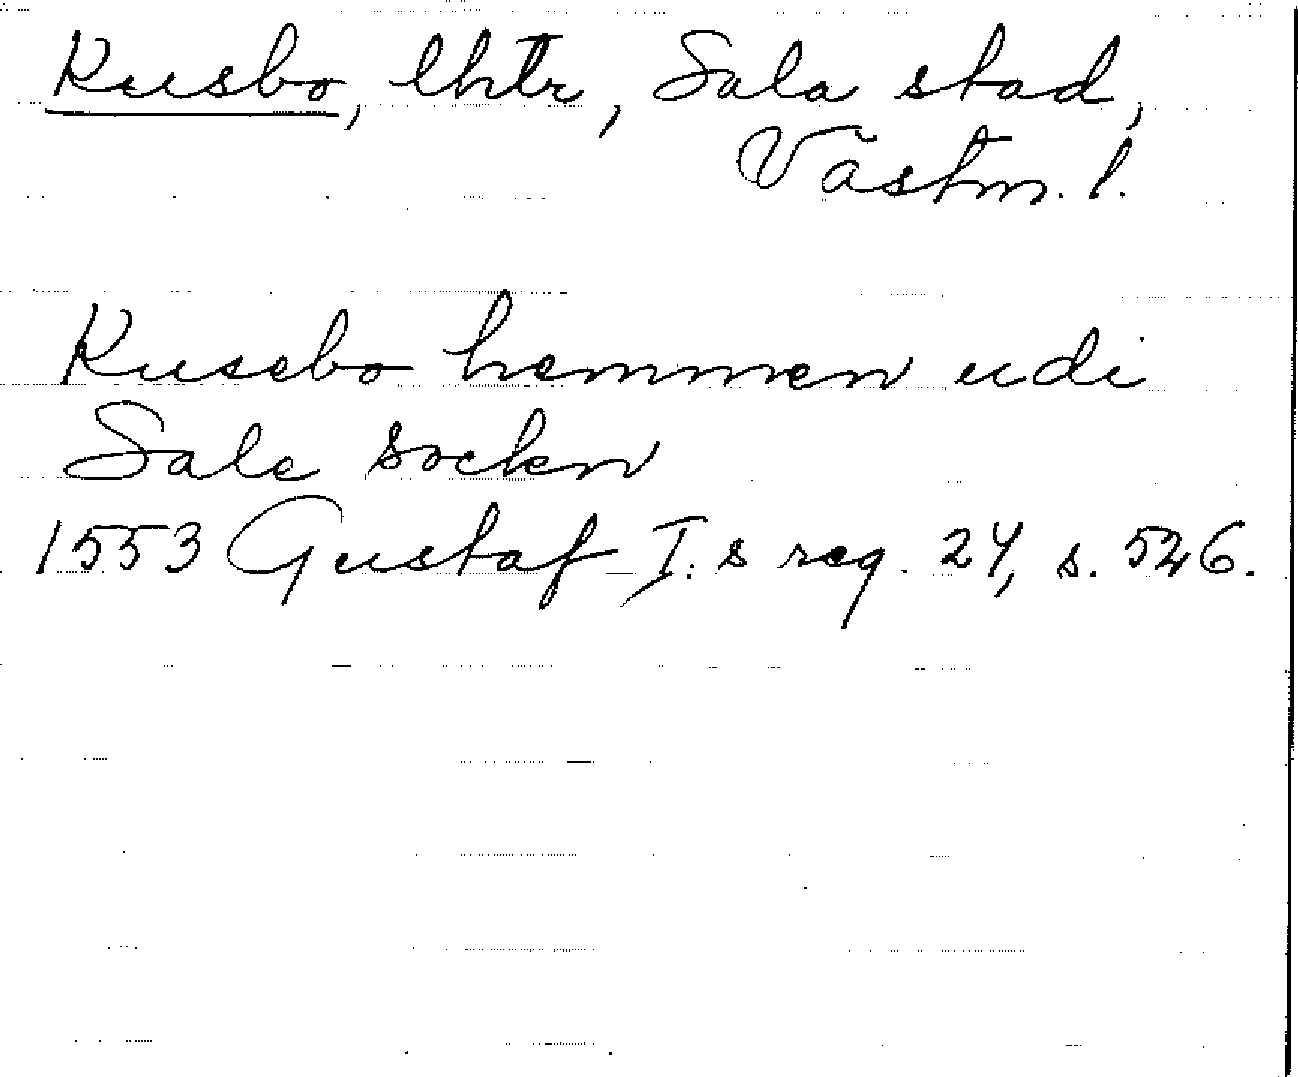 Kusbo, lhtr, Sala stad,
Västm. l.
Kusebo hemmen udi
Sale sockn
1553 Gustaf I:s reg. 24, s. 526.